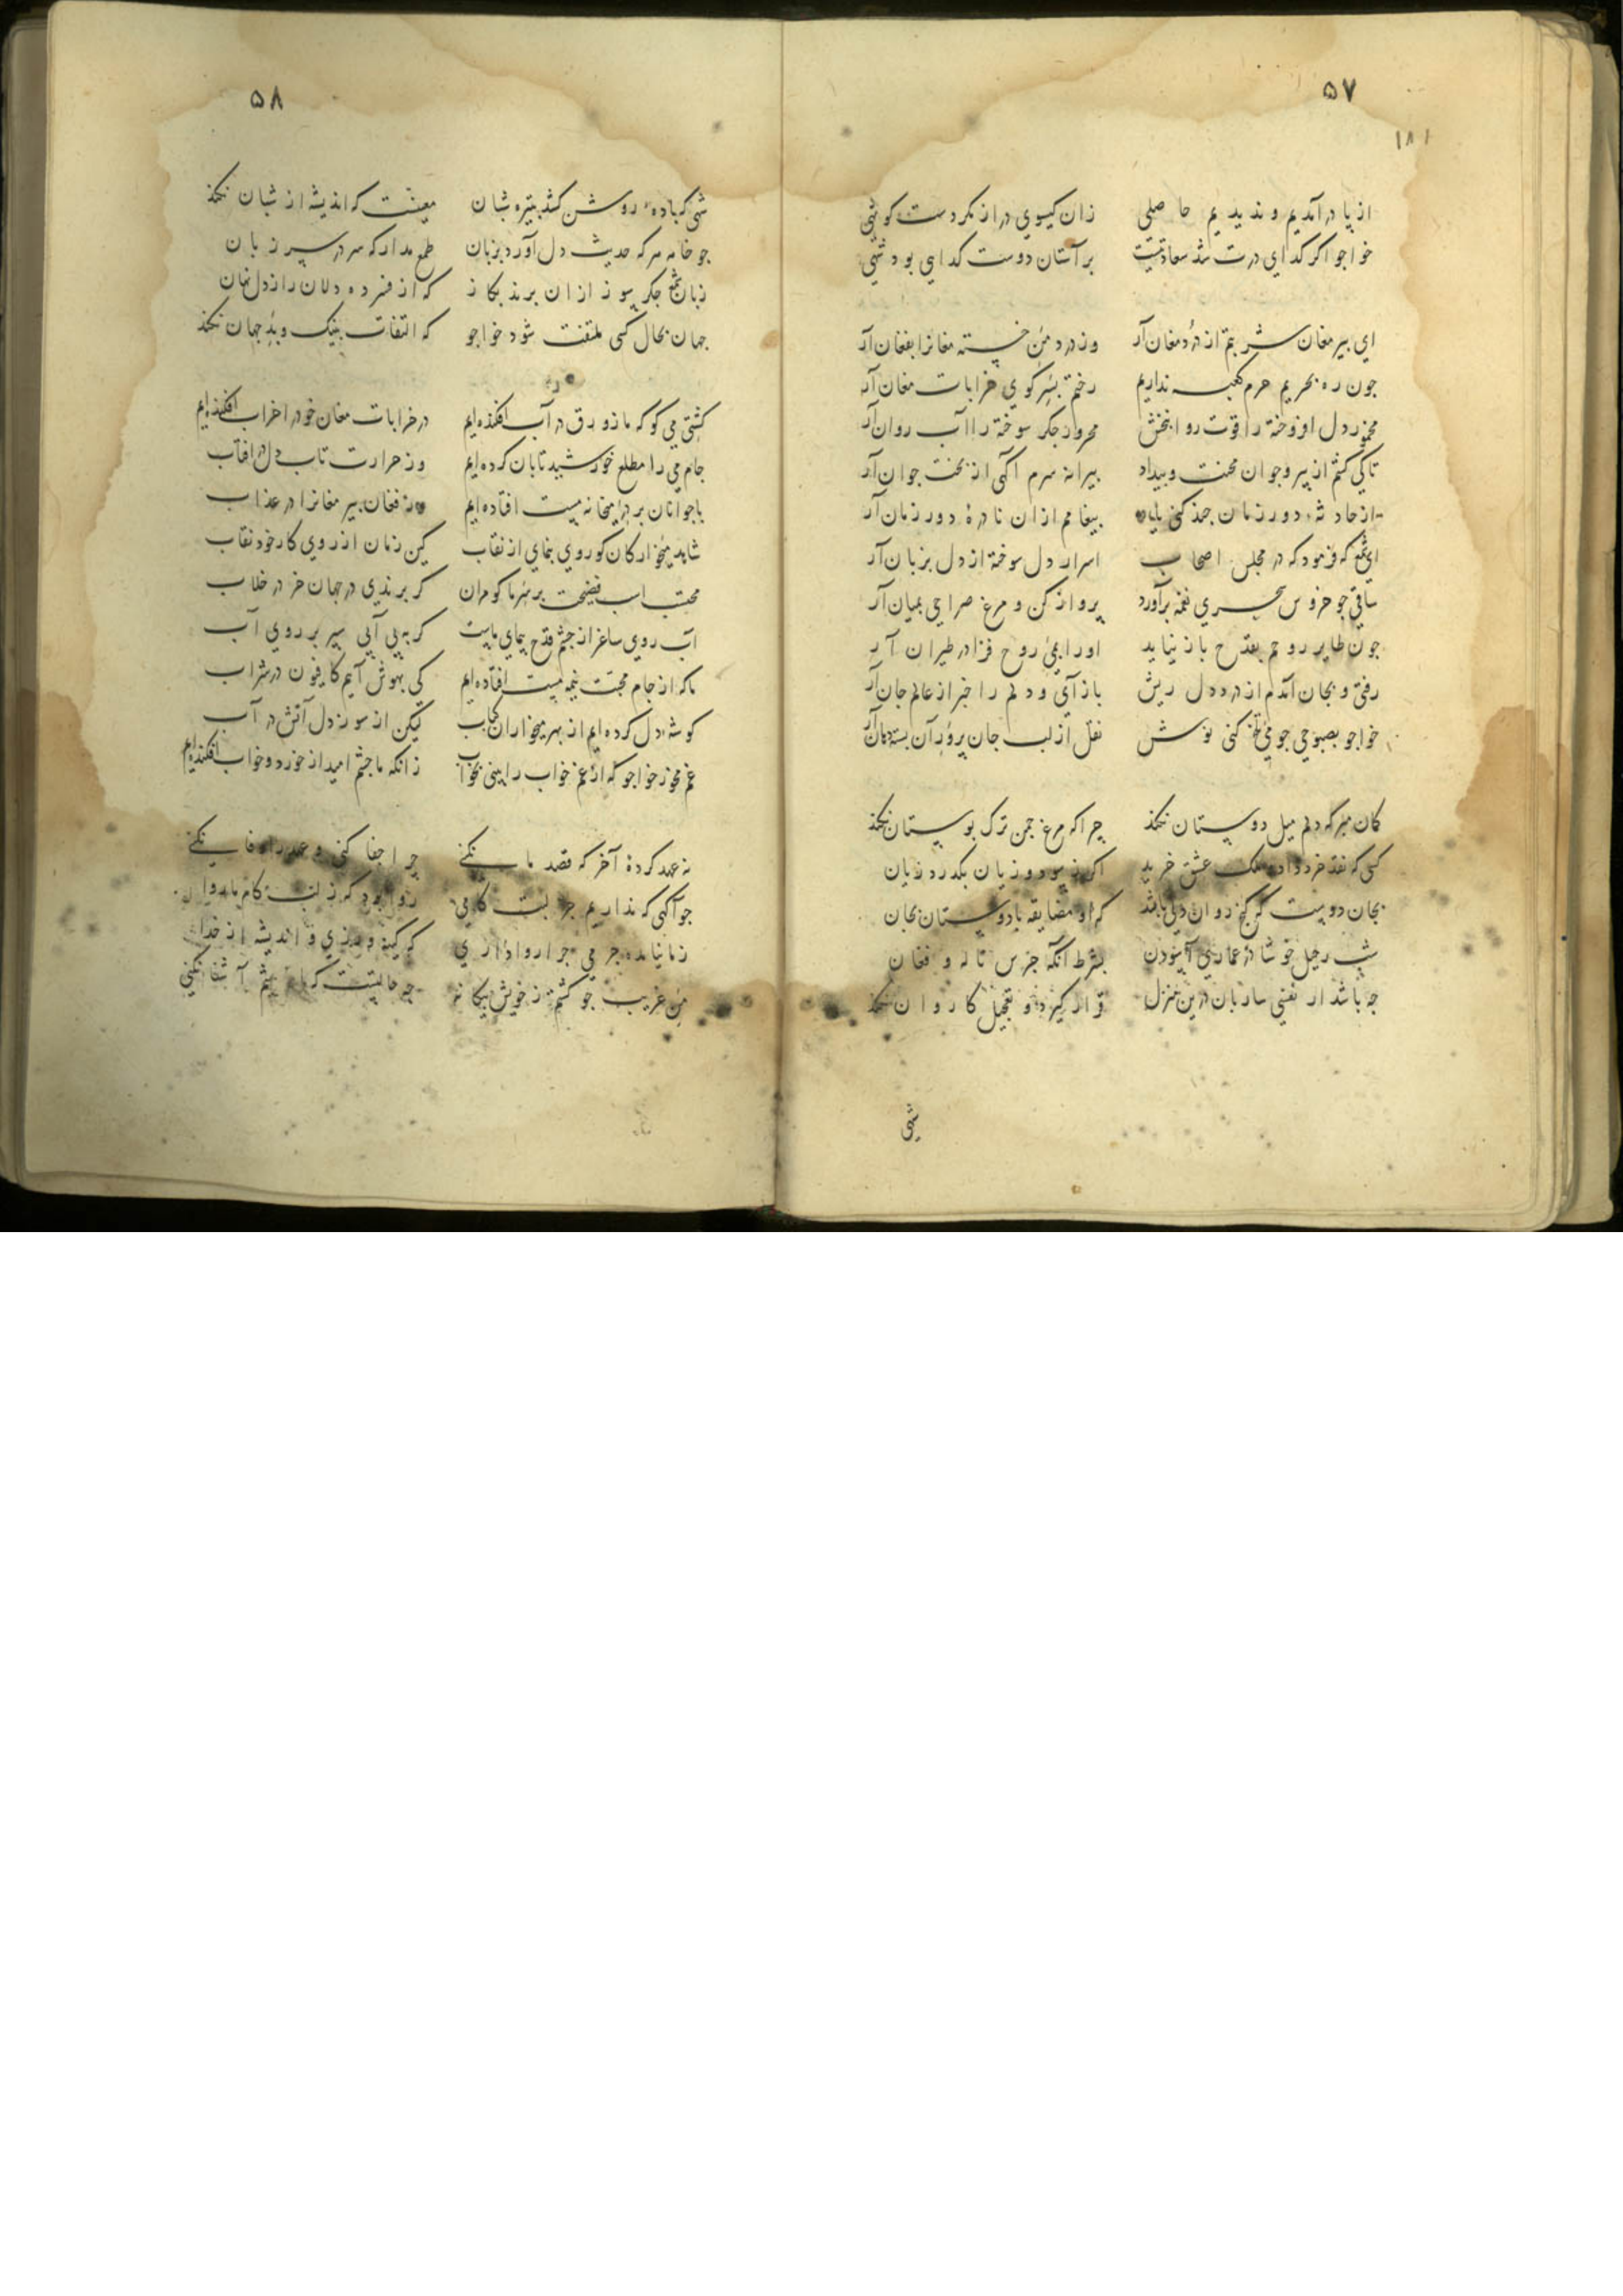 ۵۷
۱۸۱
از پا درآمدیم و ندیدیم حاصلی زان کیسوی دراز مکر دست کوتهی
خواجو اکر کدای درت شد سعادتیست بر آستان دوست کدایی بود شهی
ای پیر مغان شربتم از درد مغان آر وز درد من خسته مغانرا بفغان آر
جون ره بحریم حرم کعبه نداریم رختم بسر کوی خرابات مغان آر
مخمور دل افروخته را قوت روان بخش محرور جکر سوخته را آب روان آر
تا کی کشم از پیر و جوان محنت و بیداد پیرانه سرم آکهی از بخت جوان آر
از حادثه دور زمان جند کنی یاد پیغامم ازان نادرهٔ دور زمان آر
ای شمع که فرمود که در مجلس اصحاب اسرار دل سوخته از دل بزبان آر
ساقی جو خروس سحری نغمه برآورد پرواز کن و مرغ صراحی بمیان آر
جون طایر روحم بقدح باز نیاید او را بمی روح فزا در طیران آر
رفتی و بجان آمدم از درد دل ریش باز آی و دلم را خبر از عالم جان آر
خواجو بصبوحی جو می تلخ کنی نوش نقل از لب جان پرور آن بسته دهان آر
کمان مبر که دلم میل دوستان نکند چرا که مرغ جمن ترک بوستان نکند
کسی که نقد خرد داد و ملک عشق خرید اکر ز سود و زیان بکذرد زیان
بجان دوست که کنج روان دلی باشد که او مضایقه با دوستان بجان
شب رحیل خوشا در عماری آسودن بشرط آنکه جرس ناله و فغان
جه باشد ار نفسی ساربان درین منزل قرار کیرد و تعجیل کاروان نکند
شبی
۵۸
شبی که باده روشن کشد بتیره شبان معینست که اندیشه از شبان نکند
جو خامه هر که حدیث دل آورد بزبان طمع مدار که سر در سر زبان
زبان شمع جکر سوز ازان برند بکاز که از فسرده دلان راز دل نهان
جهان بحال کسی ملتفت شود خواجو که التفات بنیک و بد جهان نکند
کشتی می کو که ما زورق در آب افکنده‌ایم در خرابات مغان خود را خراب افکنده‌ایم
جام می را مطلع خورشید تابان کرده‌ایم وز حرارت تاب دل در آفتاب
با جوانان بر در میخانه مست افتاده‌ایم وز فغان پیر مغانرا در عذاب
شاهد میخوارکان کو روی بنمای از نقاب کین زمان از روی کار خود نقاب
محتسب اسب فضیحت بر سر ما کو مران کر برندی در جهان خر در خلاب
آب روی ساغر از جشم قدح پیمای ماست کر به بی آبی سپر بر روی آب
ما که از جام محبت نیمه مست افتاده‌ایم کی بهوش آییم کافیون در شراب
کوشه دل کرده‌ایم از بهر میخواران کباب لیکن از سوز دل آتش در آب
غم مخور خواجو که از غم خواب را بینی بخواب زانکه ما جشم امید از خورد و خواب افکنده‌ایم
نه عهد کردهٔ آخر که قصد ما نکنی چرا جفا کنی و عهد را وفا نکنی
جو آکهی که نداریم جز لبت کامی روا بود که ز لب کام ما روا
زما نیامده جرمی جرا روا داری که کینه ورزی و اندیشه از خدا
من غریب جو کشتم ز خویش بیکانه چه حالتست که با خویشم آشنا نکنی